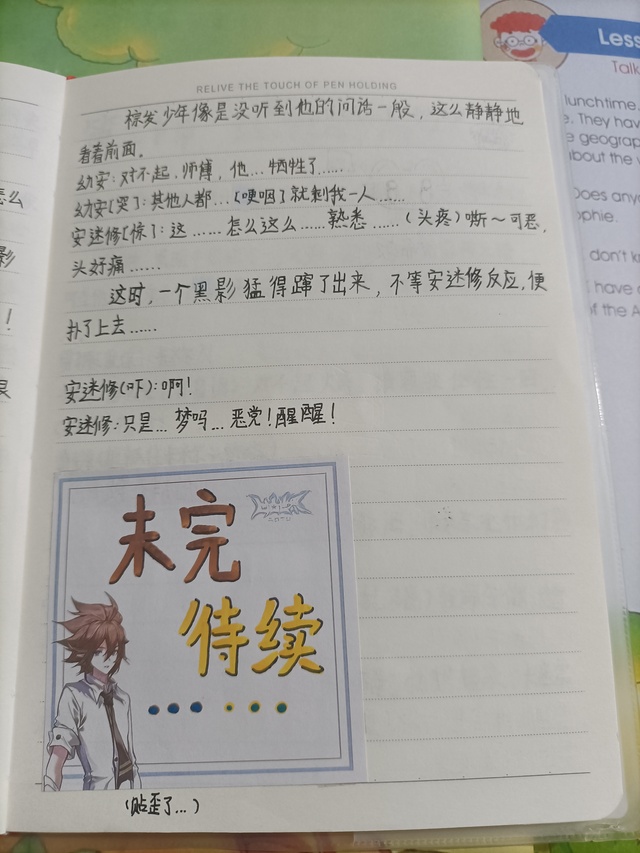 RELIVE THE TOUCH OF PEN HOLDING
棕发少年像是没听到他的问话一般，这么静静地
看着前面。
幼安：对不起，师傅，他…牺牲了……
幼安（哭）：其他人都…（哽咽）就剩我一人……
安迷修（惊）：这……怎么这么……熟悉……（头疼）嘶～可恶，
头好痛……
这时，一个黑影猛得蹿了出来，不等安迷修反应，便
扑了上去……
安迷修（吓）：啊！
安迷修：只是…梦吗…恶党！醒醒！
未完
待续
……
（贴歪了…）
怎么
影
！
Less
Talk
lunchtime
e. They have
e geograp
about the
Does any
phie.
don't k
have
of the A